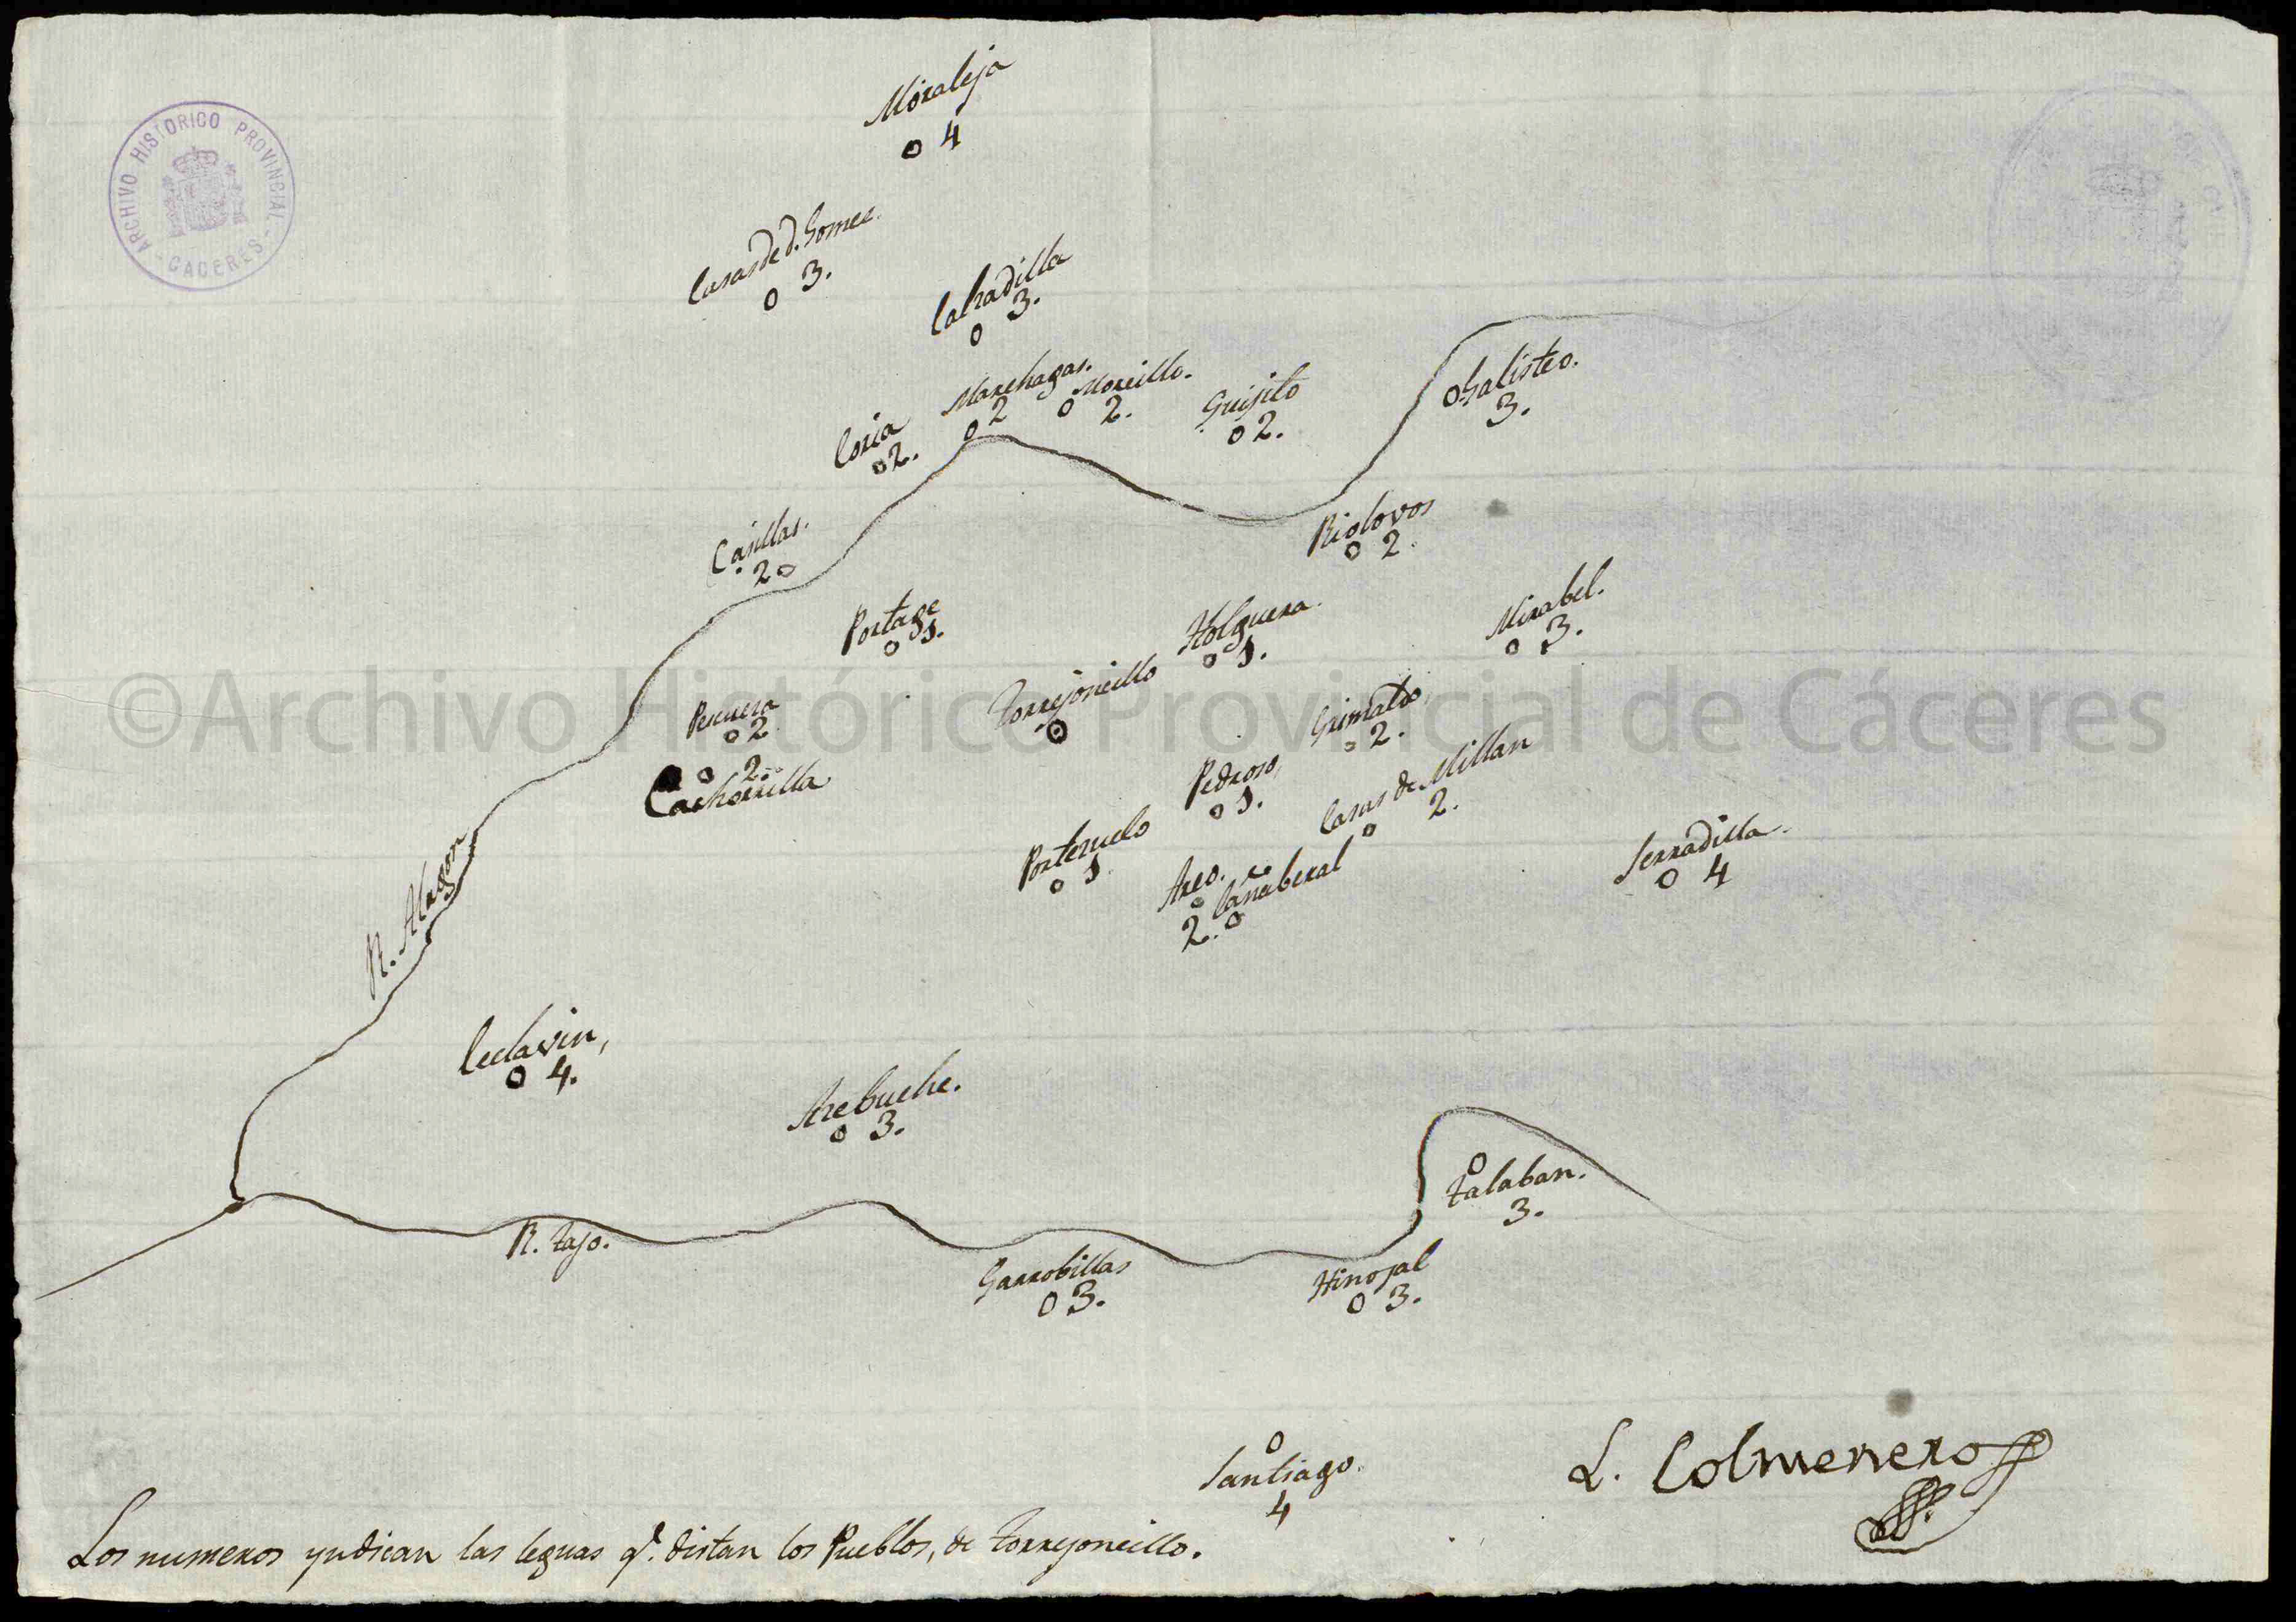 Moraleja
4
ARCHIVO HISTORICO PROVINCIAL - CACERES -
Casas de d. Gomez.
3.
Calzadilla
3.
Marchagas.
2
Morcillo.
2.
Guijito
2.
Galisteo.
3.
Coria
2.
Riolovos
2.
Casillas.
2
Portage
1.
Holguera.
1.
Mirabel.
3.
Torrejoncillo
Pescueza
2
Grimaldo,
2.
©Archivo Histórico Provincial de Cáceres
2.
Cachorrilla
Pedroso,
1.
Casas de Millan
2.
Portezuelo
1.
Arco.
Cañaberal
2.
Serradilla.
4
R. Alagon
Ceclavin,
4.
Azebuche.
3.
Talaban.
3.
R. Tajo.
Garrobillas
3.
Hinojal
3.
Santiago.
4
L. Colmenero
Los numeros yndican las leguas q.e distan los Pueblos, de Torrejoncillo.